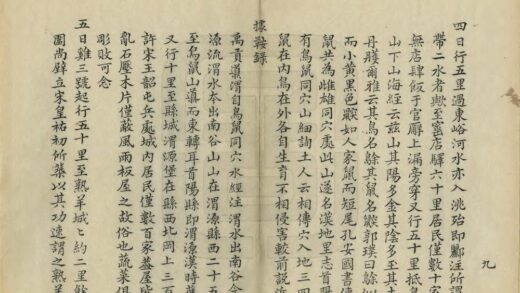 九
四日行五里過東峪河水亦入洮殆即酈注所謂
帶二水者歟至窰店驛六十里居民僅數十
無店肆飯于官廨上漏旁穿又行五十里抵
山下山海經云茲山其陽多金其陰多至其
丹濩爾雅云其鳥名鵌其鼠名鼵郭璞曰鵌
而小黃黑色鼵如人家鼠而短尾孔安國書傳
鼠共為雌雄同穴處此山遂名漢地里志首
有鳥鼠同穴山細詢土人云相傳穴入地三
鼠在內鳥在外各自生育不相侵害較前說近
據鞍錄
禹貢導渭自鳥鼠同穴水經注渭水出南谷
源流渭水本出南谷山山在渭源縣西二十五
至鳥鼠山漢而東轉耳首陽縣即渭源漢時
又行十里至縣城渭源僅在縣西北岡上三
許宋王韶屯兵處城內居民僅數百家葢屋
亂石壓木片僅蔽風雨板屋之故俗也蔬菜俱
彫敗可念
五日雞三號起行五十里至熟羊城城約二里
圖尚壁立宋皇祐初所築以其功速謂之熟羊